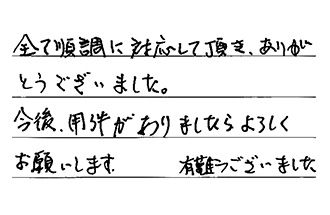 全て順調に対応して頂き、ありが
とうございました。
今後、用件がありましたらよろしく
お願いします. 有難うございました